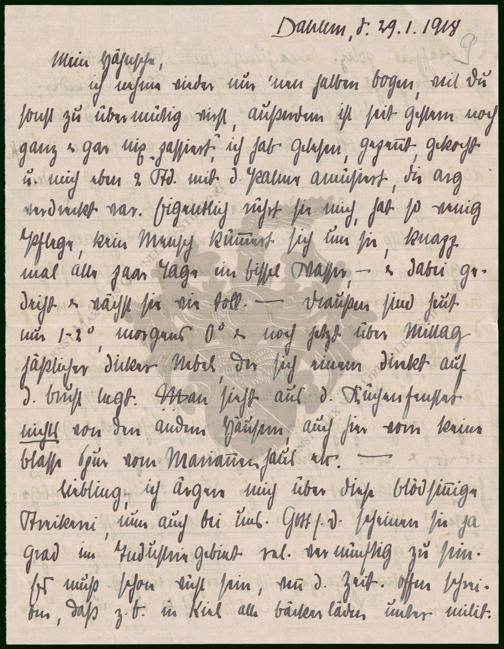 Dahlem, d. 29.1.1918
9
Mein Häschen,
ich nehme wieder nur 'nen halben bogen, weil du
sonst zu übermütig wirst, außerdem ist seit gestern noch
ganz & gar nix „passiert", ich hab gelesen, gepennt, gekocht
u. mich eben 2 Std. mit d. Palme amüsiert, die arg
verdreckt war. Eigentlich rührt sie mich, hat so wenig
Pflege, kein Mensch kümmert sich um sie, knapp
mal alle paar Tage ein bissel Wasser, – & dabei ge-
deiht & wächst sie wie toll. — Draußen sind heut
nur 1-2°, morgens 0° & noch jetzt über Mittag
häßlicher dicker Nebel, der sich einem direkt auf
d. brust legt. Man sieht aus d. Küchenfenster
nichts von den andern Häusern, auch hier vorn keine
blasse Spur vom Mariannenhaus etc. —
Liebling, ich ärgere mich über diese blödsinnige
Streikerei, nun auch bei uns. Gott s. d. scheinen sie ja
grad im Industriegebiet rel. vernünftig zu sein.
Es muß schon wüst sein, wenn d. Zeit. offen schrei-
ben, daß z. b. in Kiel alle bäckerläden unter milit.